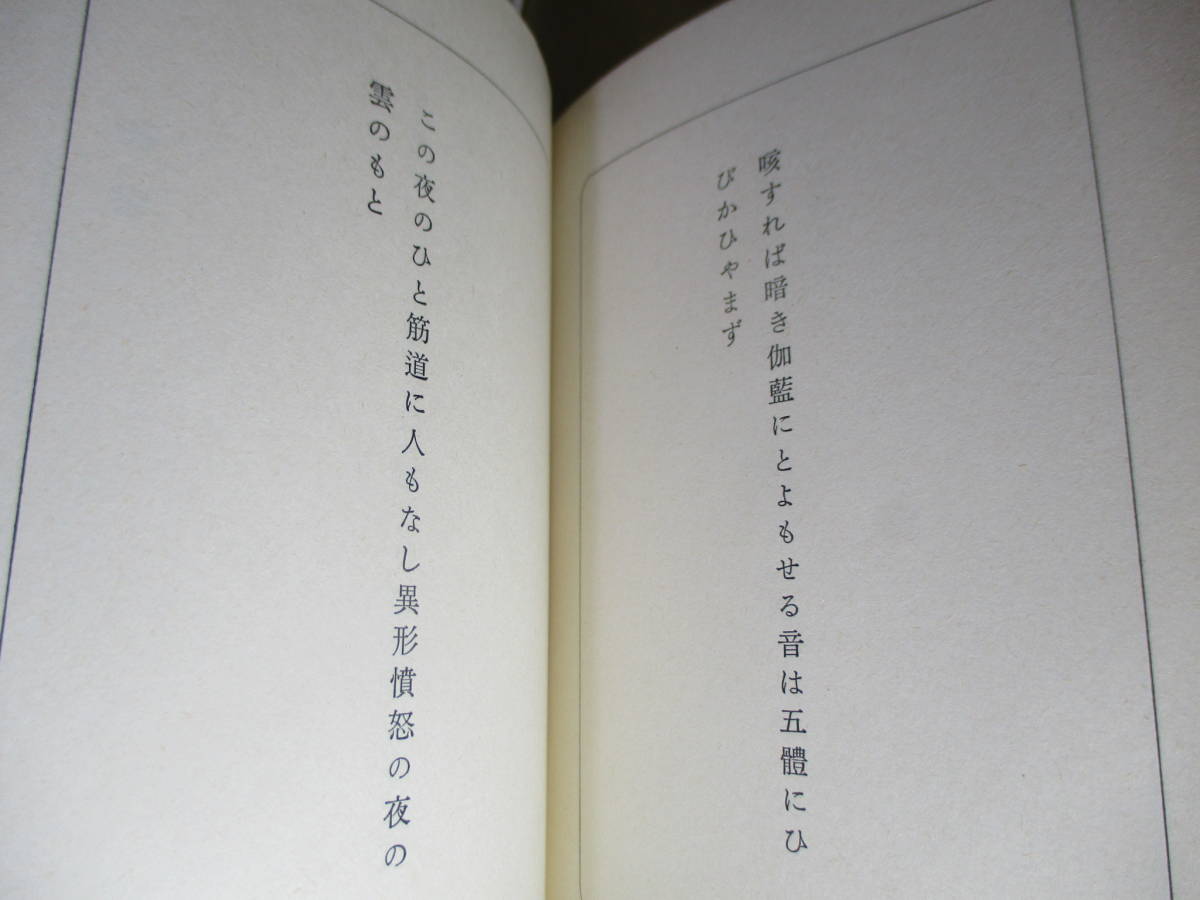 咳すれば暗き伽藍にとよもせる音は五體にひ
びかひやまず
この夜のひと筋道に人もなし異形憤怒の夜の
雲のもと